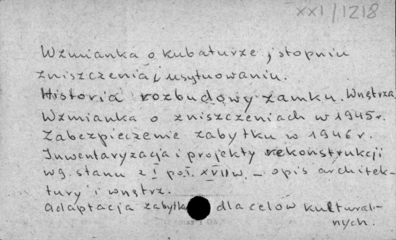 XXI/1218
Wzmianka o kubaturze, stopniu
zniszczenia i usytuowaniu.
Historia rozbudowy zamku. Wnętrza
Wzmianka o zniszczeniach w 1945r.
Zabezpieczenie zabytku w 1946r.
Inwentaryzacja i projekty rekonstrukcji
wg. stanu z I poł. XVII w. – opis architek-
tury i wnętrz.
Adaptacja zabytk dla celów kultural-
nych.